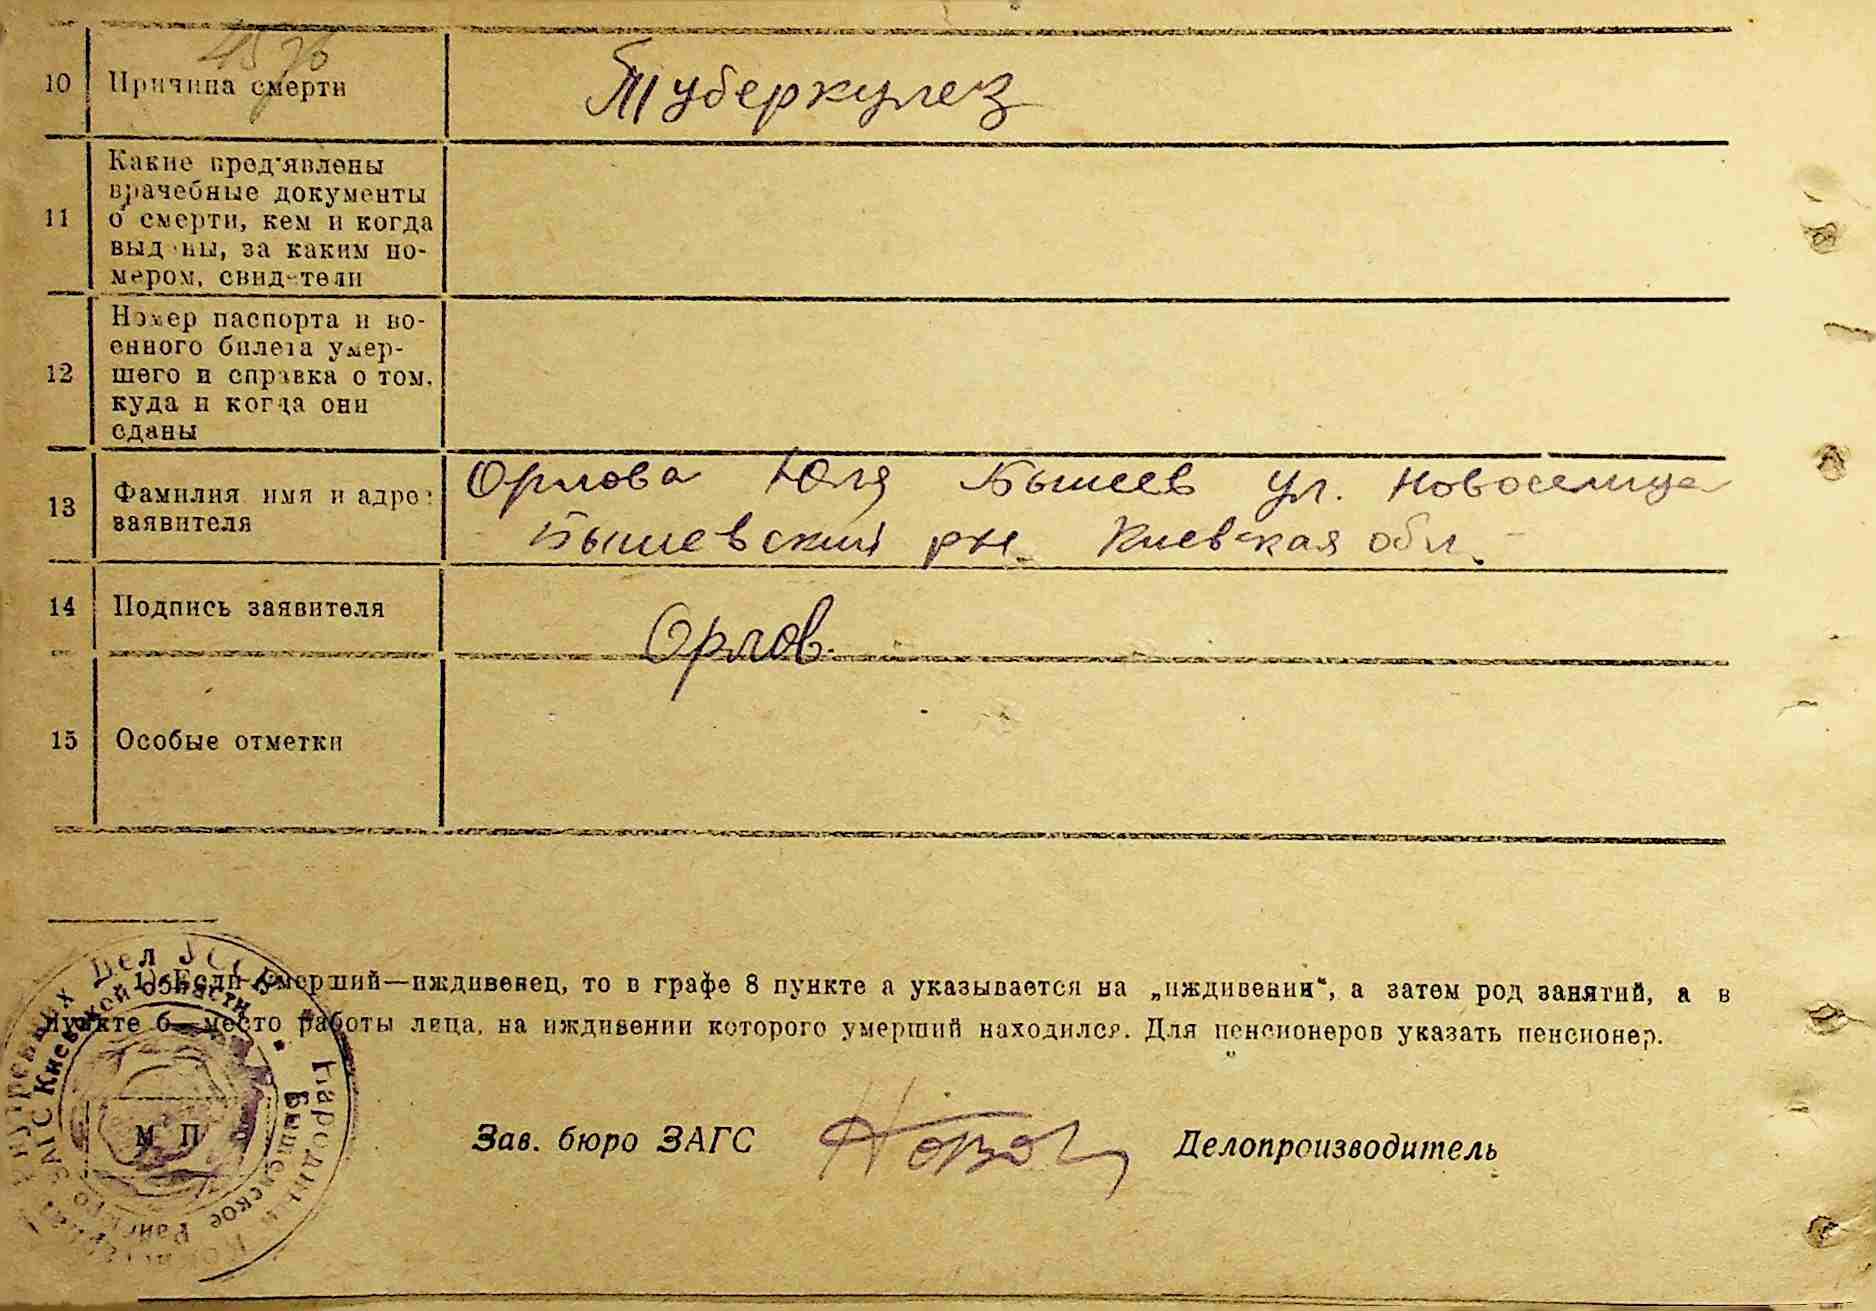 10 Причина смерти Туберкулез
11 Какие пред'явлены
врачебные документы
о смерти, кем и когда
выданы, за каким но-
мером, свидетели
12 Номер паспорта и во-
енного билета умер-
шего и справка о том,
куда и когда они
сданы
13 Фамилия имя и адрес
заявителя
Орлова Юля Бышев ул. Новоселица
Бышевский рн. Киевская обл.
14 Подпись заявителя Орлов.
15 Особые отметки
1) Если умерший—иждивенец, то в графе 8 пункте а указывается на „иждивении“, а затем род занятий, а в
пункте б—место работы лица, на иждивении которого умерший находился. Для пенсионеров указать пенсионер.
Зав. бюро ЗАГС Делопроизводитель
М П
Народный
Внутренних Дел УССР
ЗАГС Киевской области